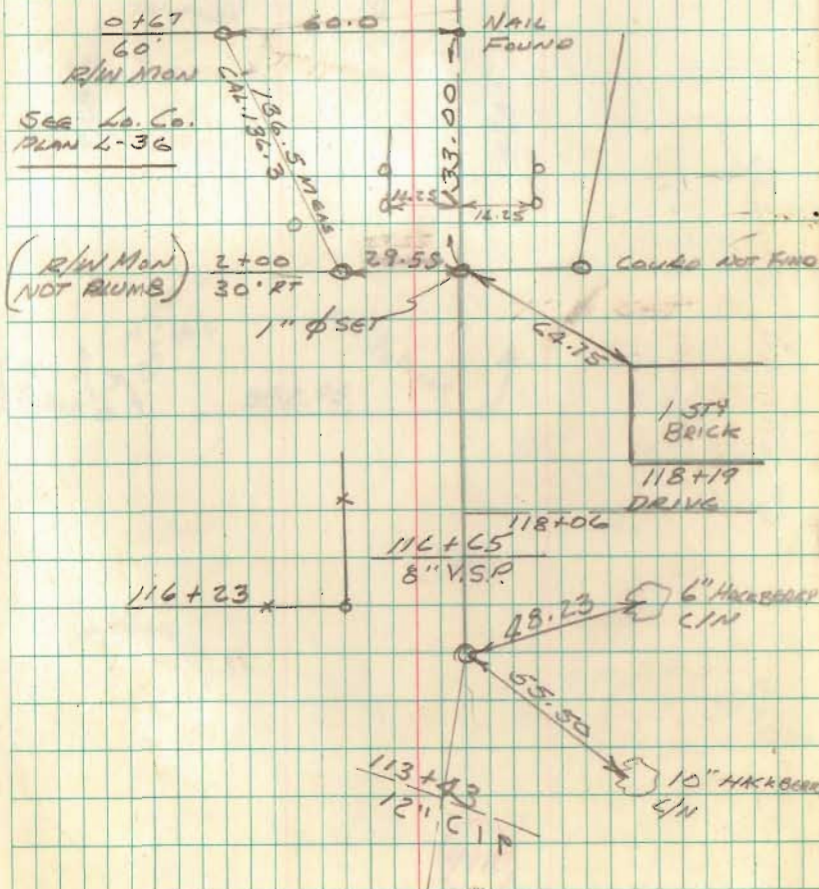 0+67
60'
R/W MON
60.0
NAIL
FOUND
SEE Lo. Co.
PLAN L-36
136.5 MEAS
CAL. 136.3
133.00
14.25
14.25
(R/W MON
NOT PLUMB)
2+00
30' RT
29.55
COULD NOT FIND
1" φ SET
64.75
1 STY
BRICK
118+19
DRIVE
118+06
116+65
8" V.S.P.
116+23
48.23
6" HACKBERRY
C/N
55.50
10" HACKBERR
C/N
113+43
12" C I P